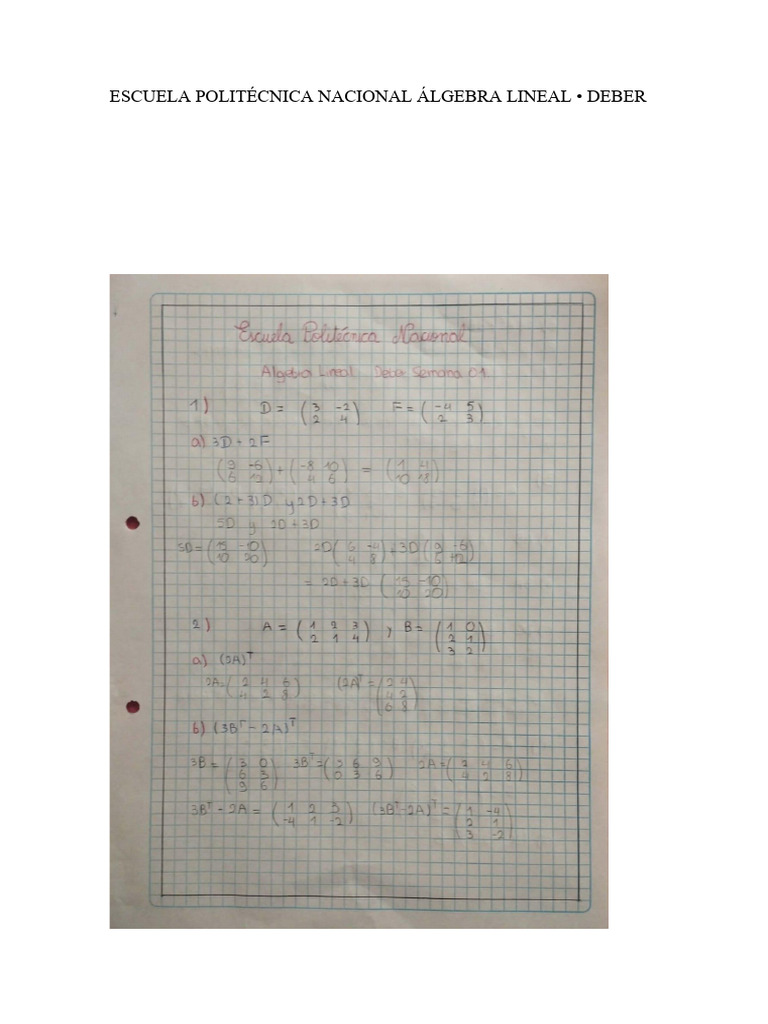 ESCUELA POLITÉCNICA NACIONAL ÁLGEBRA LINEAL • DEBER
Escuela Politécnica Nacional
Algebra Lineal Deber Semana 01
1) D = (3 -2 F = (-4 5
2 4) 2 3)
a) 3D + 2F
(9 -6 + (-8 10 = (1 4
6 12) 4 6) 10 18)
b) (2+3)D y 2D+3D
5D y 2D+3D
5D = (15 -10 2D (6 -4 + 3D (9 -6
10 20) 4 8) 6 +12)
= 2D+3D (15 -10
10 20)
2) A = (1 2 3 , B = (1 0
2 1 4) 2 1
3 2)
a) (2A)ᵀ
2A = (2 4 6 (2A)ᵀ = (2 4
4 2 8) 4 2
6 8)
b) (3Bᵀ - 2A)ᵀ
3B = (3 0 3Bᵀ = (3 6 9 2A = (2 4 6
6 3 0 3 6) 4 2 8)
9 6)
3Bᵀ - 2A = (1 2 3 (3Bᵀ-2A)ᵀ = (1 -4
-4 1 -2) 2 1
3 -2)